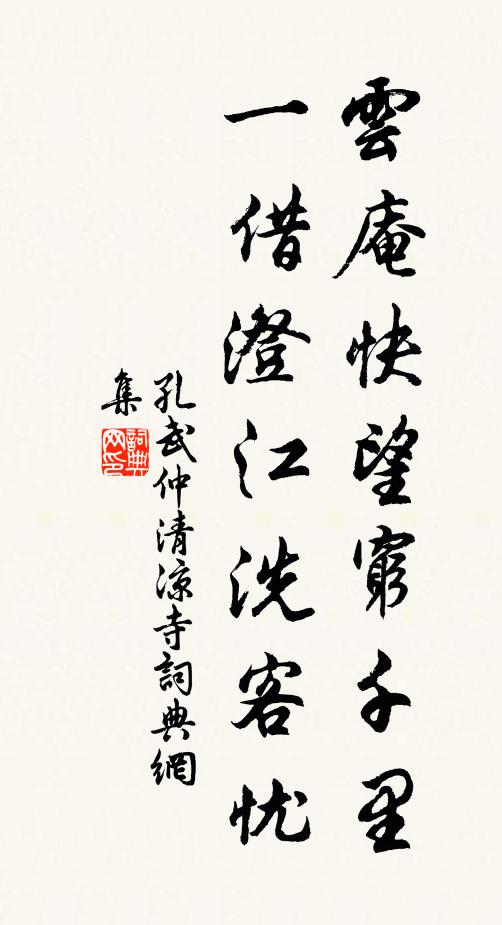 雲庵快望窮千里
一借澄江洗客忧
孔武仲清涼寺詞典網
集
詞典
网印